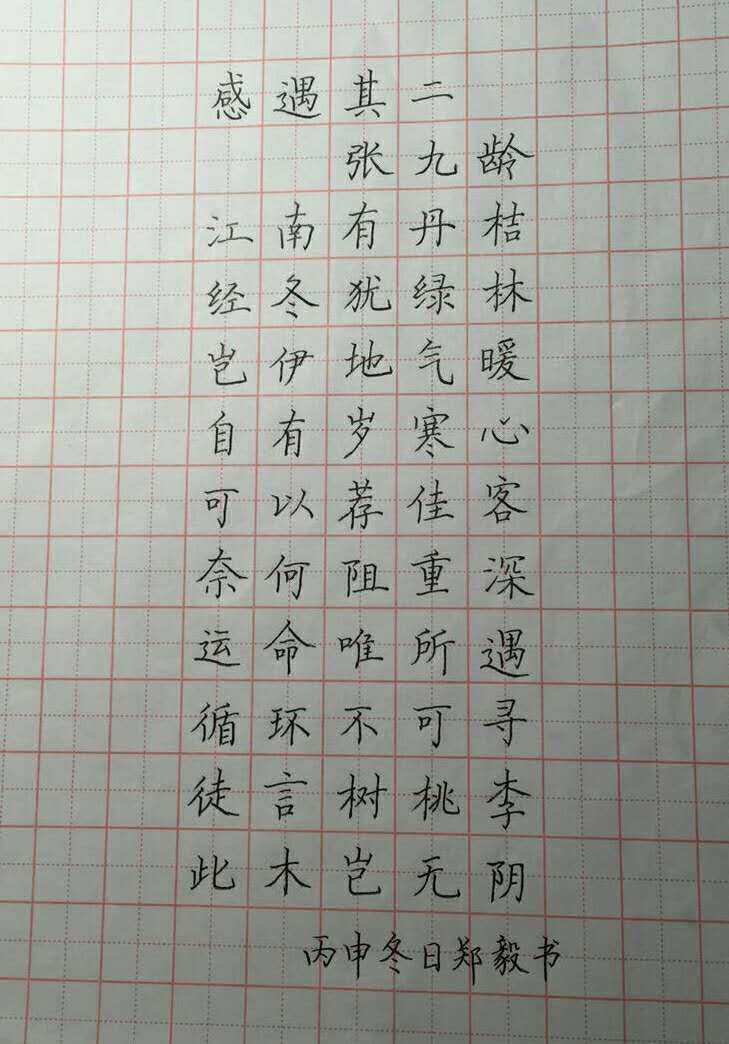 感遇其二
张九龄
江南有丹桔
经冬犹绿林
岂伊地气暖
自有岁寒心
可以荐佳客
奈何阻重深
运命唯所遇
循环不可寻
徒言树桃李
此木岂无阴
丙申冬日郑毅书